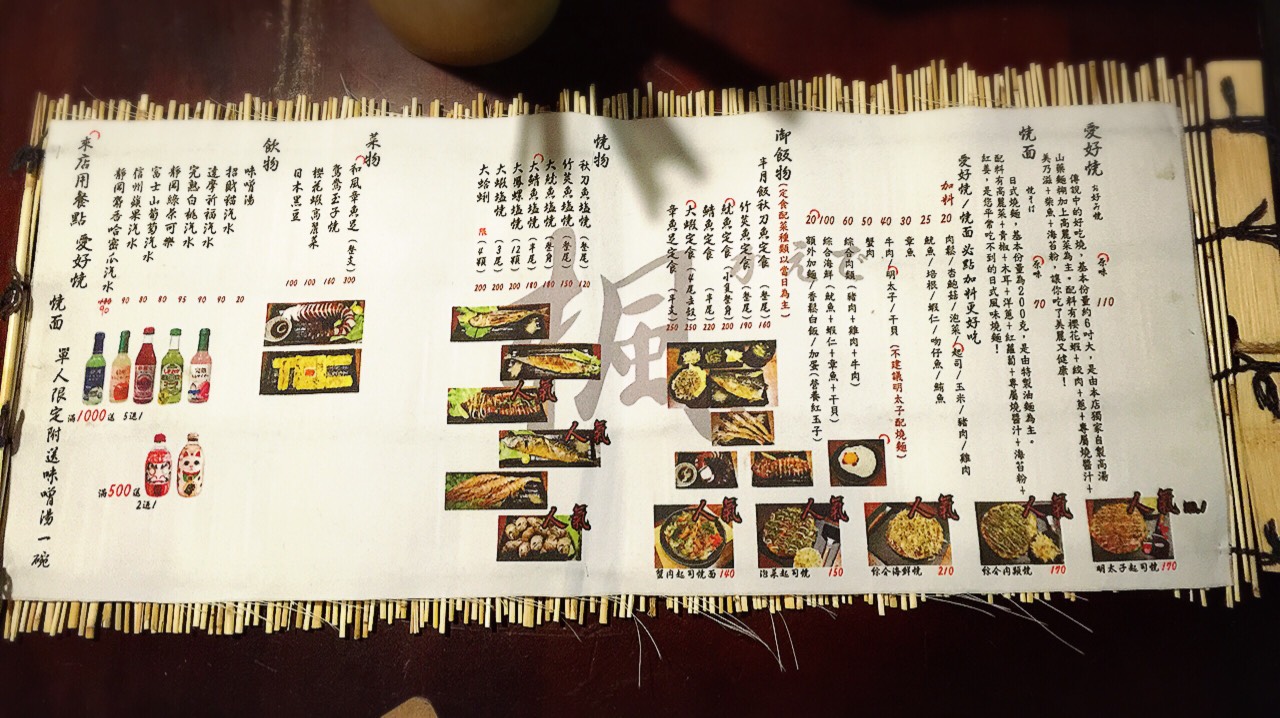 愛好燒 お好み燒 原味 110
傳說中的好吃燒，基本份量約6吋大，是由本店獨家自製高湯
山藥麵糊加上高麗菜為主。配料有櫻花蝦+絞肉+蔥+專屬燒醬汁+
美乃滋+柴魚+海苔粉，讓你吃了美麗又健康！
燒面 原味 70
日式燒麵，基本份量為200克，是由特製油麵為主。
配料有高麗菜+青椒+木耳+洋蔥+紅蘿蔔+專屬燒醬汁+海苔粉+
紅姜，是您平常吃不到的日式風味燒麵！
愛好燒/燒面 必點加料更好吃
加料
20 肉鬆/杏鮑菇/泡菜/起司/玉米/豬肉/雞肉
25 魷魚/培根/蝦仁/吻仔魚/鮪魚
30 章魚
40 牛肉/明太子/干貝(不建議明太子配燒麵)
50 蟹肉
60 綜合肉類(豬肉+雞肉+牛肉)
100 綜合海鮮(魷魚+蝦仁+章魚+干貝)
20 額外加麵/香鬆白飯/加蛋(營養紅玉子)
御飯物(定食配菜種類以當日為主)
半月飯秋刀魚定食(整尾) 160
竹筴魚定食(整尾) 190
魷魚定食 200
鯖魚定食(半尾) 220
大蝦定食 250
章魚足定食(半支) 250
燒物
秋刀魚塩燒(整尾) 120
竹筴魚塩燒(整尾) 150
大魷魚塩燒(整身) 180
大鯖魚塩燒(半尾) 180
大鳳螺塩燒 200
大蝦塩燒 200
大蛤蜊 200
菜物
和風章魚足(整支) 160
鴛鴦玉子燒 160
櫻花蝦高麗菜 100
日本黑豆 100
飲物
味噌湯 20
招財貓汽水 90
達摩祈福汽水 90
完熟白桃汽水 95
靜岡綠茶可樂 90
富士山葡萄汽水 80
信州蘋果汽水 90
靜岡麝香哈密瓜汽水 90
來店用餐點 愛好燒
燒面 單人限定附送味噌湯一碗
滿1000送 5選1
滿500送
2選1
人氣
人氣
人氣
人氣
人氣
人氣
人氣
人氣
蟹肉起司燒面140
泡菜起司燒 150
綜合海鮮燒 210
綜合肉類燒 170
明太子起司燒170
楓